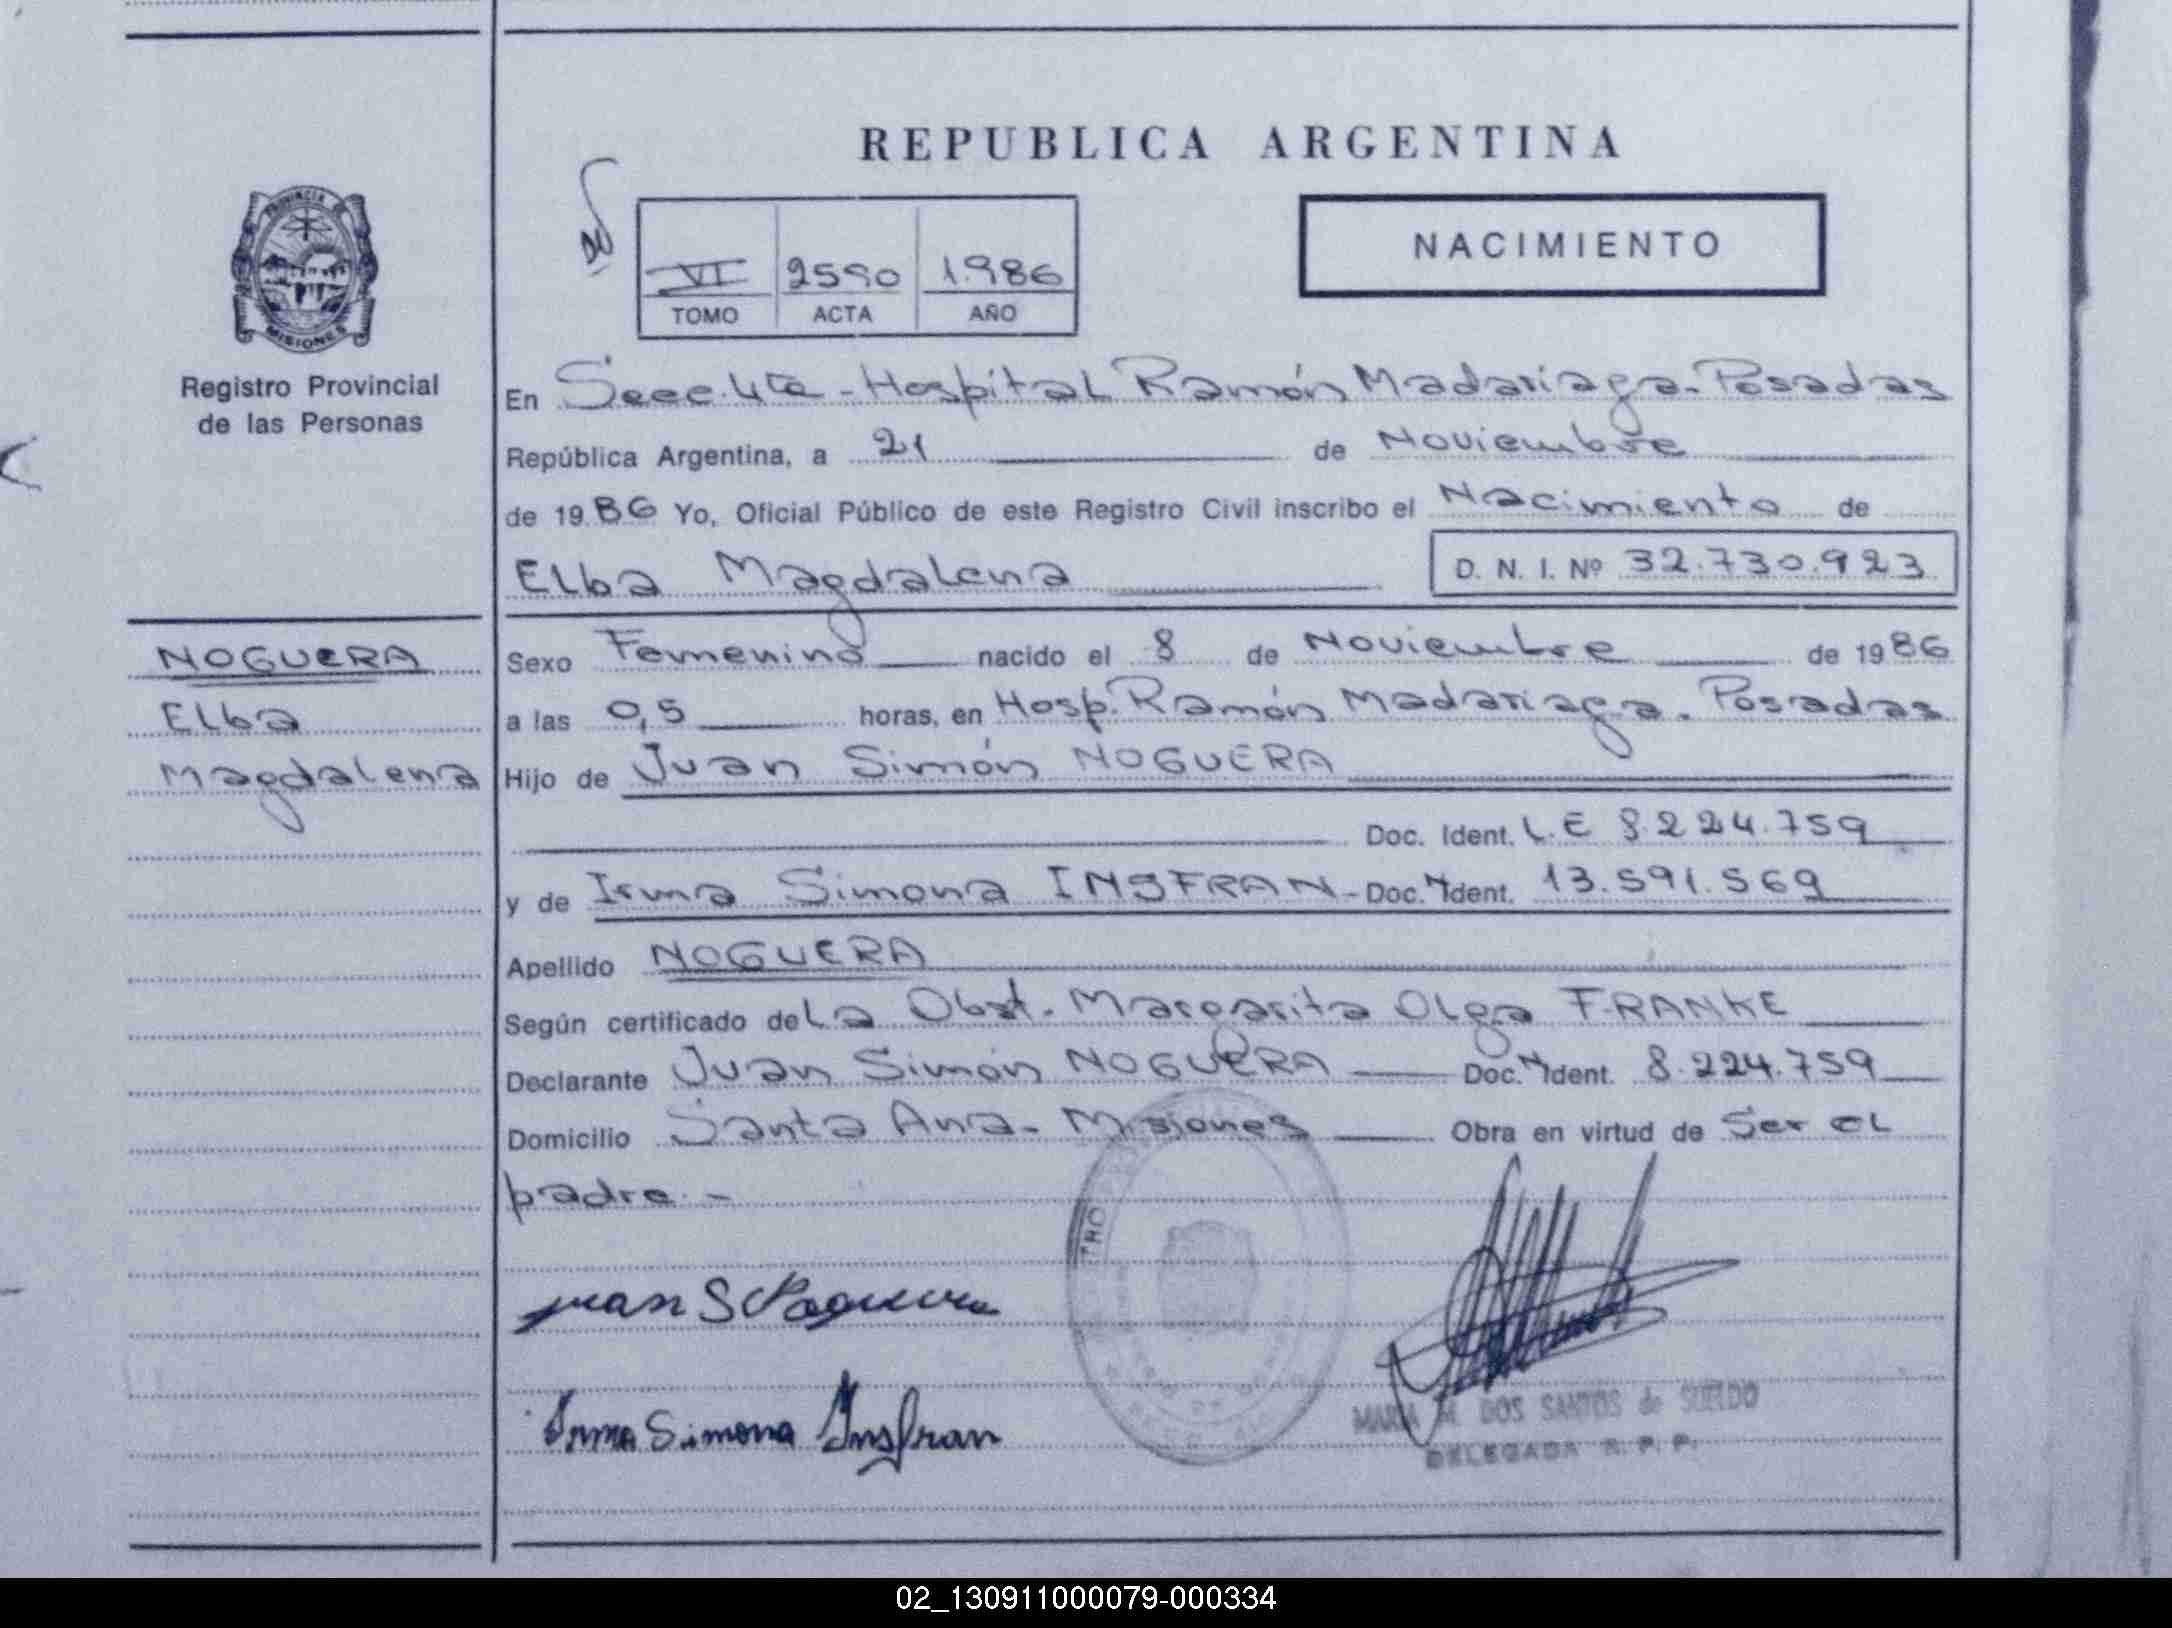 REPUBLICA ARGENTINA
PROVINCIA DE
MISIONES
Registro Provincial
de las Personas
VI 2590 1.986
TOMO ACTA AÑO
NACIMIENTO
En Secc. 4ta - Hospital Ramón Madariaga - Posadas
República Argentina, a 21 de Noviembre
de 1986 Yo, Oficial Público de este Registro Civil inscribo el Nacimiento de
Elba Magdalena D. N. I. Nº 32.730.923
NOGUERA
Elba
Magdalena
Sexo Femenino nacido el 8 de Noviembre de 1986
a las 0,5 horas, en Hosp. Ramón Madariaga. Posadas
Hijo de Juan Simón NOGUERA
Doc. Ident. L.E 8.224.759
y de Irma Simona INSFRAN - Doc. Ident. 13.591.569
Apellido NOGUERA
Según certificado de La Obst. Margarita Olga FRANKE
Declarante Juan Simón NOGUERA Doc. Ident. 8.224.759
Domicilio Santa Ana - Misiones Obra en virtud de Ser el
padre. -
Juan S Noguera
Irma Simona Insfran
MARIA M. DOS SANTOS de SUELDO
DELEGADA R. P. P.
02_130911000079-000334